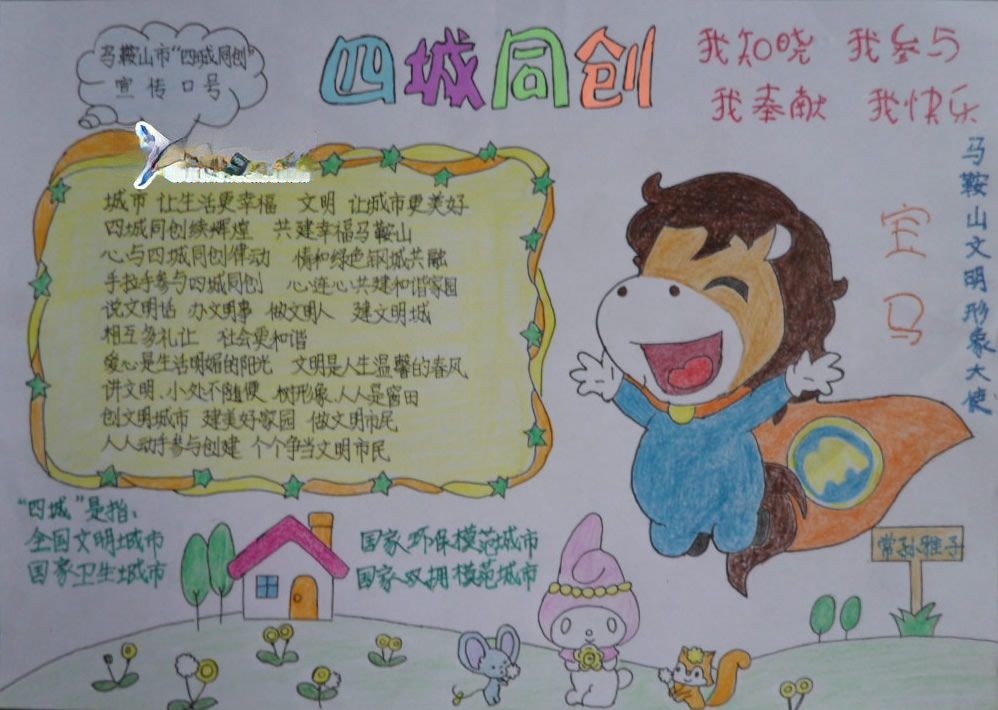 马鞍山市“四城同创”
宣传口号
四城同创
我知晓 我参与
我奉献 我快乐
城市 让生活更幸福 文明 让城市更美好
四城同创续辉煌 共建幸福马鞍山
心与四城同创伴动 情和绿色钢城共融
手拉手参与四城同创 心连心共建和谐家园
说文明话 办文明事 做文明人 建文明城
相互多礼让 社会更和谐
爱心是生活明媚的阳光 文明是人生温馨的春风
讲文明、小处不随便 树形象、人人是窗口
创文明城市 建美好家园 做文明市民
人人动手参与创建 个个争当文明市民
马鞍山文明形象大使
宝马
“四城”是指:
全国文明城市
国家卫生城市
国家环保模范城市
国家双拥模范城市